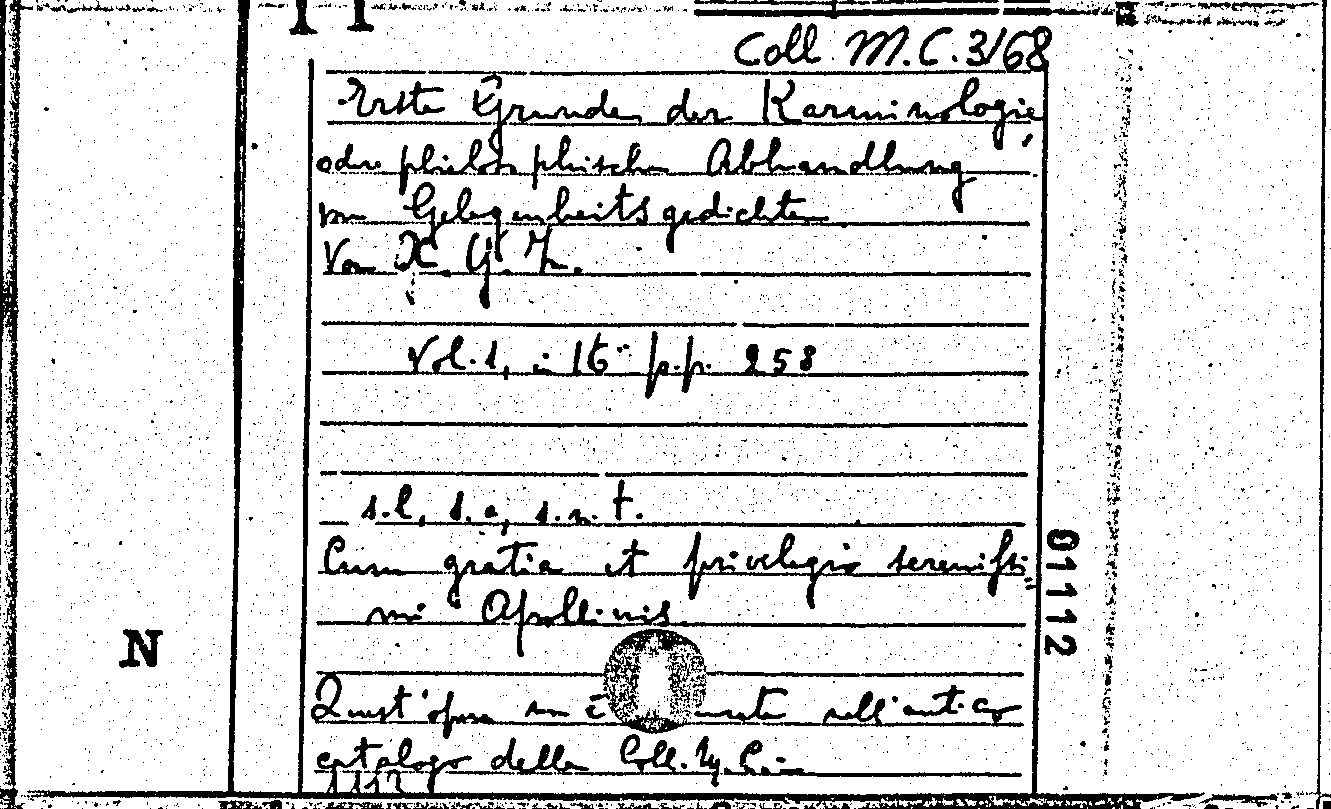 Coll. M.C. 3/68
Erste Grunde der Karminologie,
oder philosophischen Abhandlung
Gelegenheitsgedichten
Von G.
Vol. 1, in 16° p.p. 258
s.l, s.a, s.n.t.
Cum gratia et privelegio serenissi=
mi Apollinis.
01112
N
Quest'opera è nell'antico
catalogo della Coll.
1112